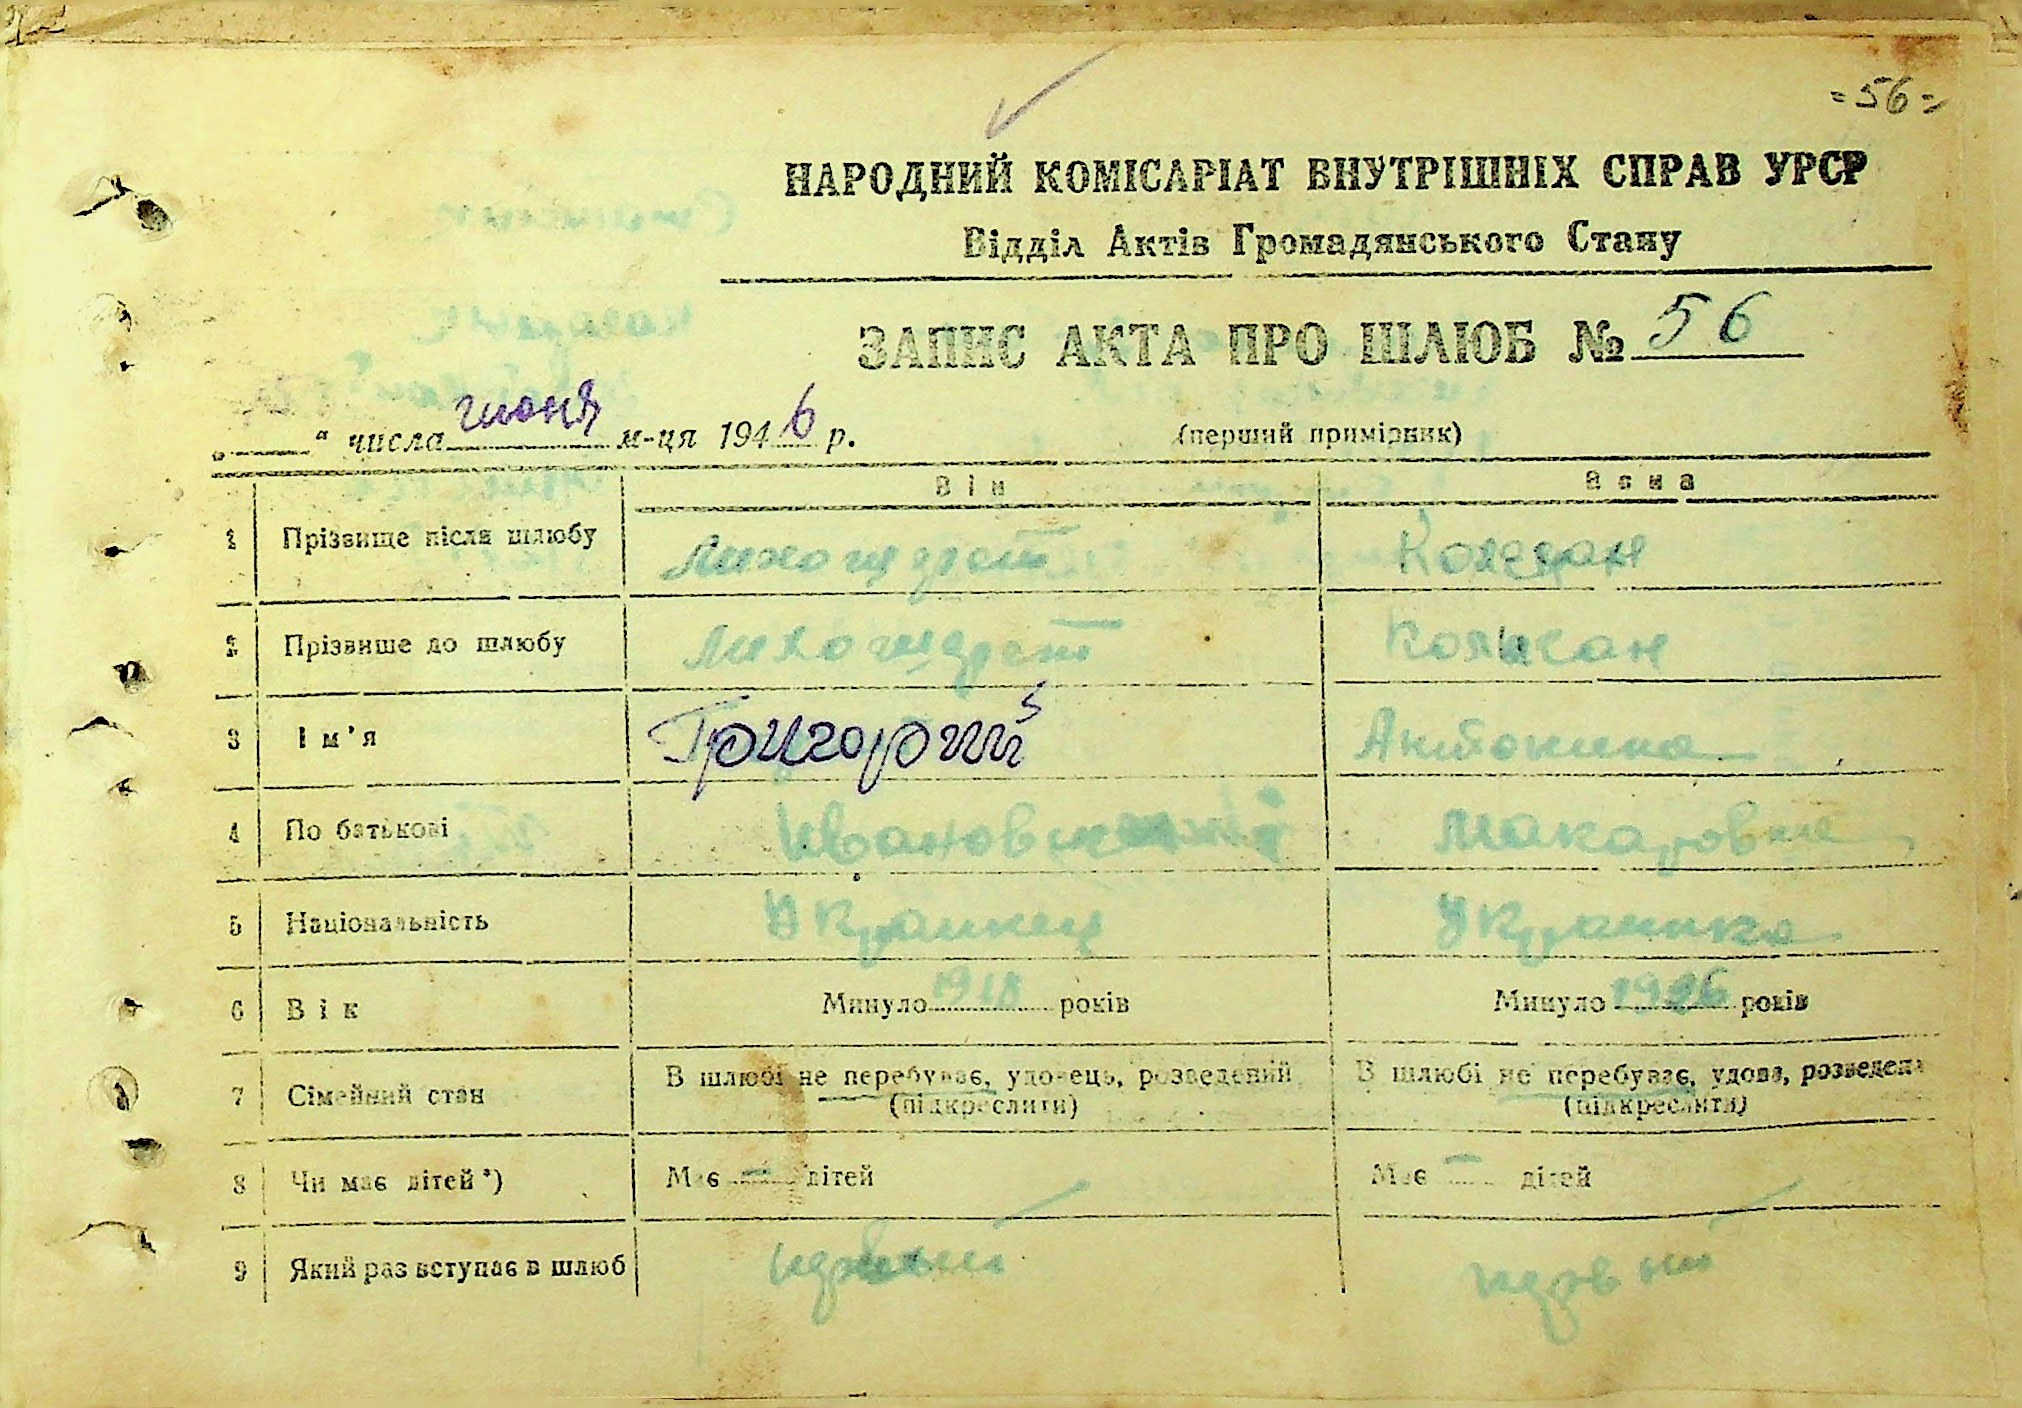 =56=
НАРОДНИЙ КОМІСАРІАТ ВНУТРІШНІХ СПРАВ УРСР
Відділ Актів Громадянського Стану
ЗАПИС АКТА ПРО ШЛЮБ № 56
„ “ числа июня м-ця 1946 р. (перший примірник)
Він Вона
1 Прізвище після шлюбу
2 Прізвище до шлюбу
3 Ім'я Григорий Антонина
4 По батькові Макаровна
5 Національність Украинец Украинка
6 Вік Минуло 1918 років Минуло 1926 років
7 Сімейний стан В шлюбі не перебуває, удовець, розведений В шлюбі не перебуває, удова, розведена
(підкреслити) (підкреслити)
8 Чи має дітей*) Має — дітей Має — дітей
9 Який раз вступає в шлюб первый